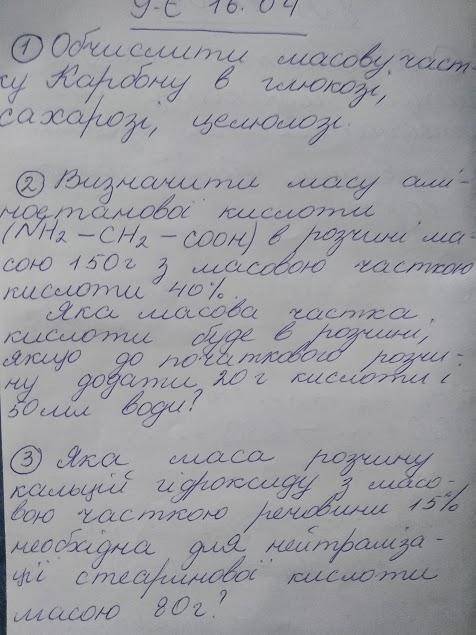 9-Є 16.04
① Обчислити масову част-
ку Карбону в глюкозі,
сахарозі, целюлозі.
② Визначити масу амі-
ноетанової кислоти
(NH2 – CH2 – COOH) в розчині ма-
сою 150г з масовою часткою
кислоти 40%.
Яка масова частка
кислоти буде в розчині,
якщо до початкового розчи-
ну додати 20г кислоти і
50мл води?
③ Яка маса розчину
кальцій гідроксиду з масо-
вою часткою речовини 15%
необхідна для нейтраліза-
ції стеаринової кислоти
масою 80г?